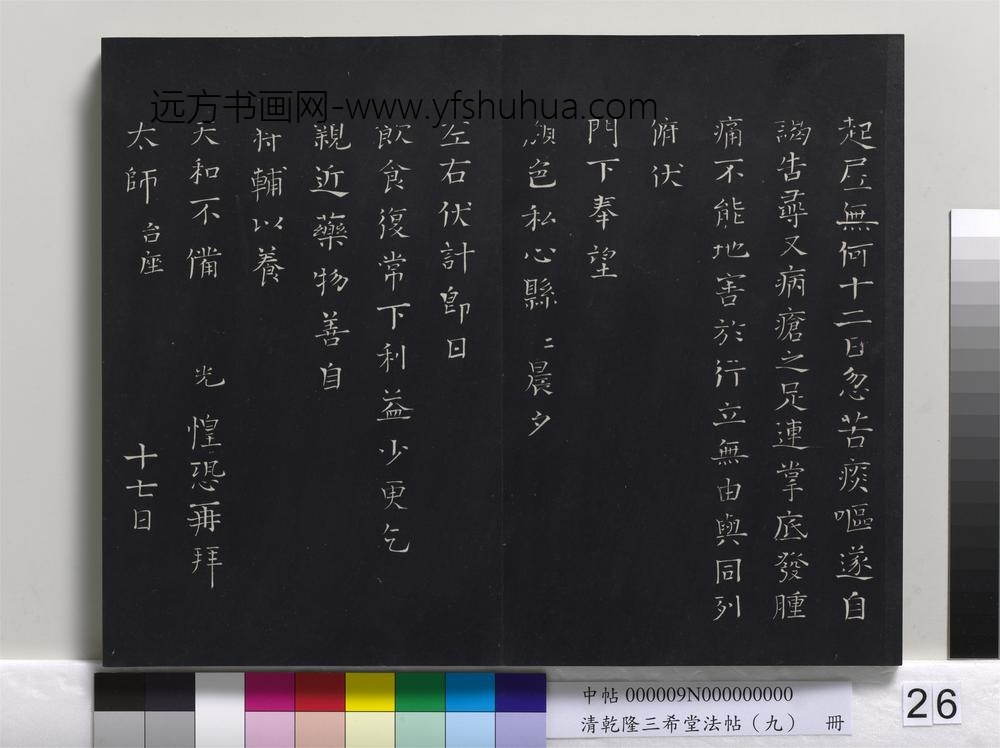 远方书画网-www.yfshuhua.com
起居無何十二日忽苦痰嘔遂自
謁告尋又病瘡之足連掌底發腫
痛不能地害於行立無由與同列
俯伏
門下奉望
顔色私心縣〻晨夕
左右伏計即日
飲食復常下利益少更乞
親近藥物善自
將輔以養
天和不備 光惶恐再拜
太師台座 十七日
中帖000009N000000000
清乾隆三希堂法帖（九） 冊
26